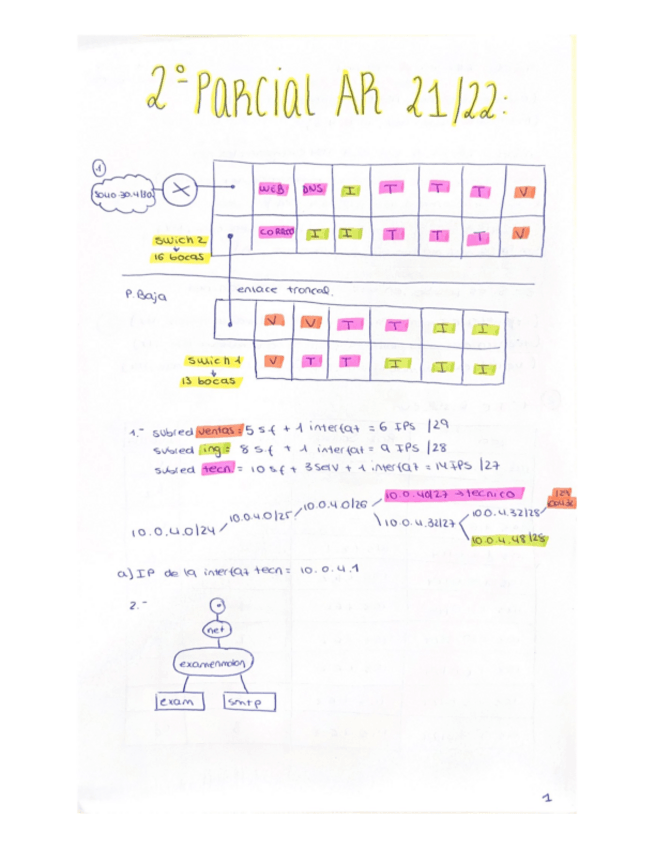 2º PARCIAL AR 21/22:
1
WEB DNS I T T T V
CORREO I I T T T V
Swich 2
16 bocas
enlace troncal.
P. Baja
V V T T I I
V T T I I I
Swich 1
13 bocas
1.- subred ventas = 5 sf + 1 interfat = 6 IPs /29
subred ing = 8 sf + 1 interfat = 9 IPs /28
subred tecn = 10 sf + 3 serv + 1 interfat = 14 IPs /27
10.0.4.0/24 10.0.4.0/25 10.0.4.0/26 10.0.4.0/27 → tecnico
10.0.4.32/27 10.0.4.32/28
10.0.4.48/28
a) IP de la interfat tecn = 10.0.4.1
2.-
.
net
examenmolon
exam smtp
1